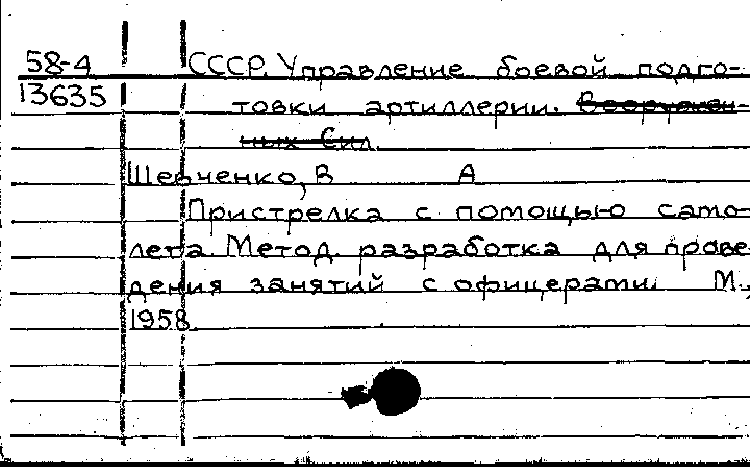 58-4 СССР. Управление боевой подго-
13635 товки артиллерии. Вооружен-
ных Сил.
Шевченко, В А
Пристрелка с помощью само-
лета. Метод. разработка для прове-
дения занятий с офицерами. М.,
1958.